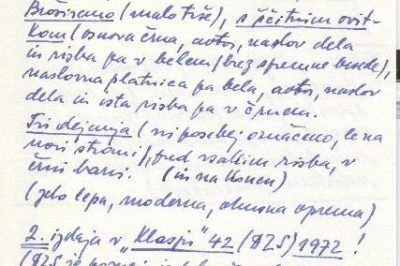 Broširano (malo trše), s ščitnim ovit-
kom (osnova črna, avtor, naslov dela
in risba pa v belem (brez spremne besede),
naslovna platnica pa bela, avtor, naslov
dela in ista risba pa v črnem.
Tri dejanja ( ni posebej označeno, le na
novi strani), pred vsakim risba, v
črni barvi. (in na koncu)
(zelo lepa, moderna, okusna oprema)
2. izdaja v "Klasju" 42 (DZS) 1972 !
(DZS je